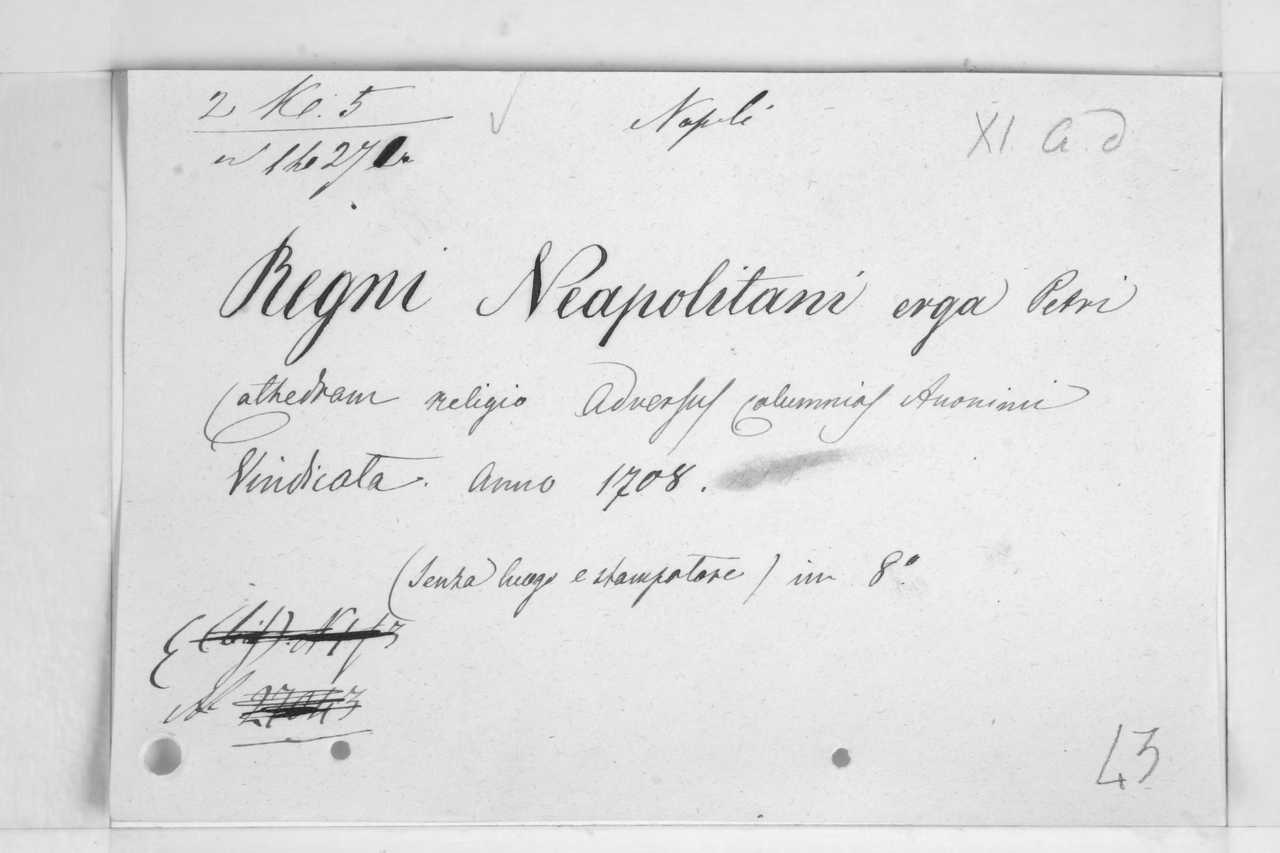 2 Ke. 5
Napoli
XI. a. d
Regni Neapolitani erga Petri
Cathedram religio Adversus Calumnias Anonimi
Vindicata. Anno 1708.
(Senza luogo e stampatore) in 8°
43